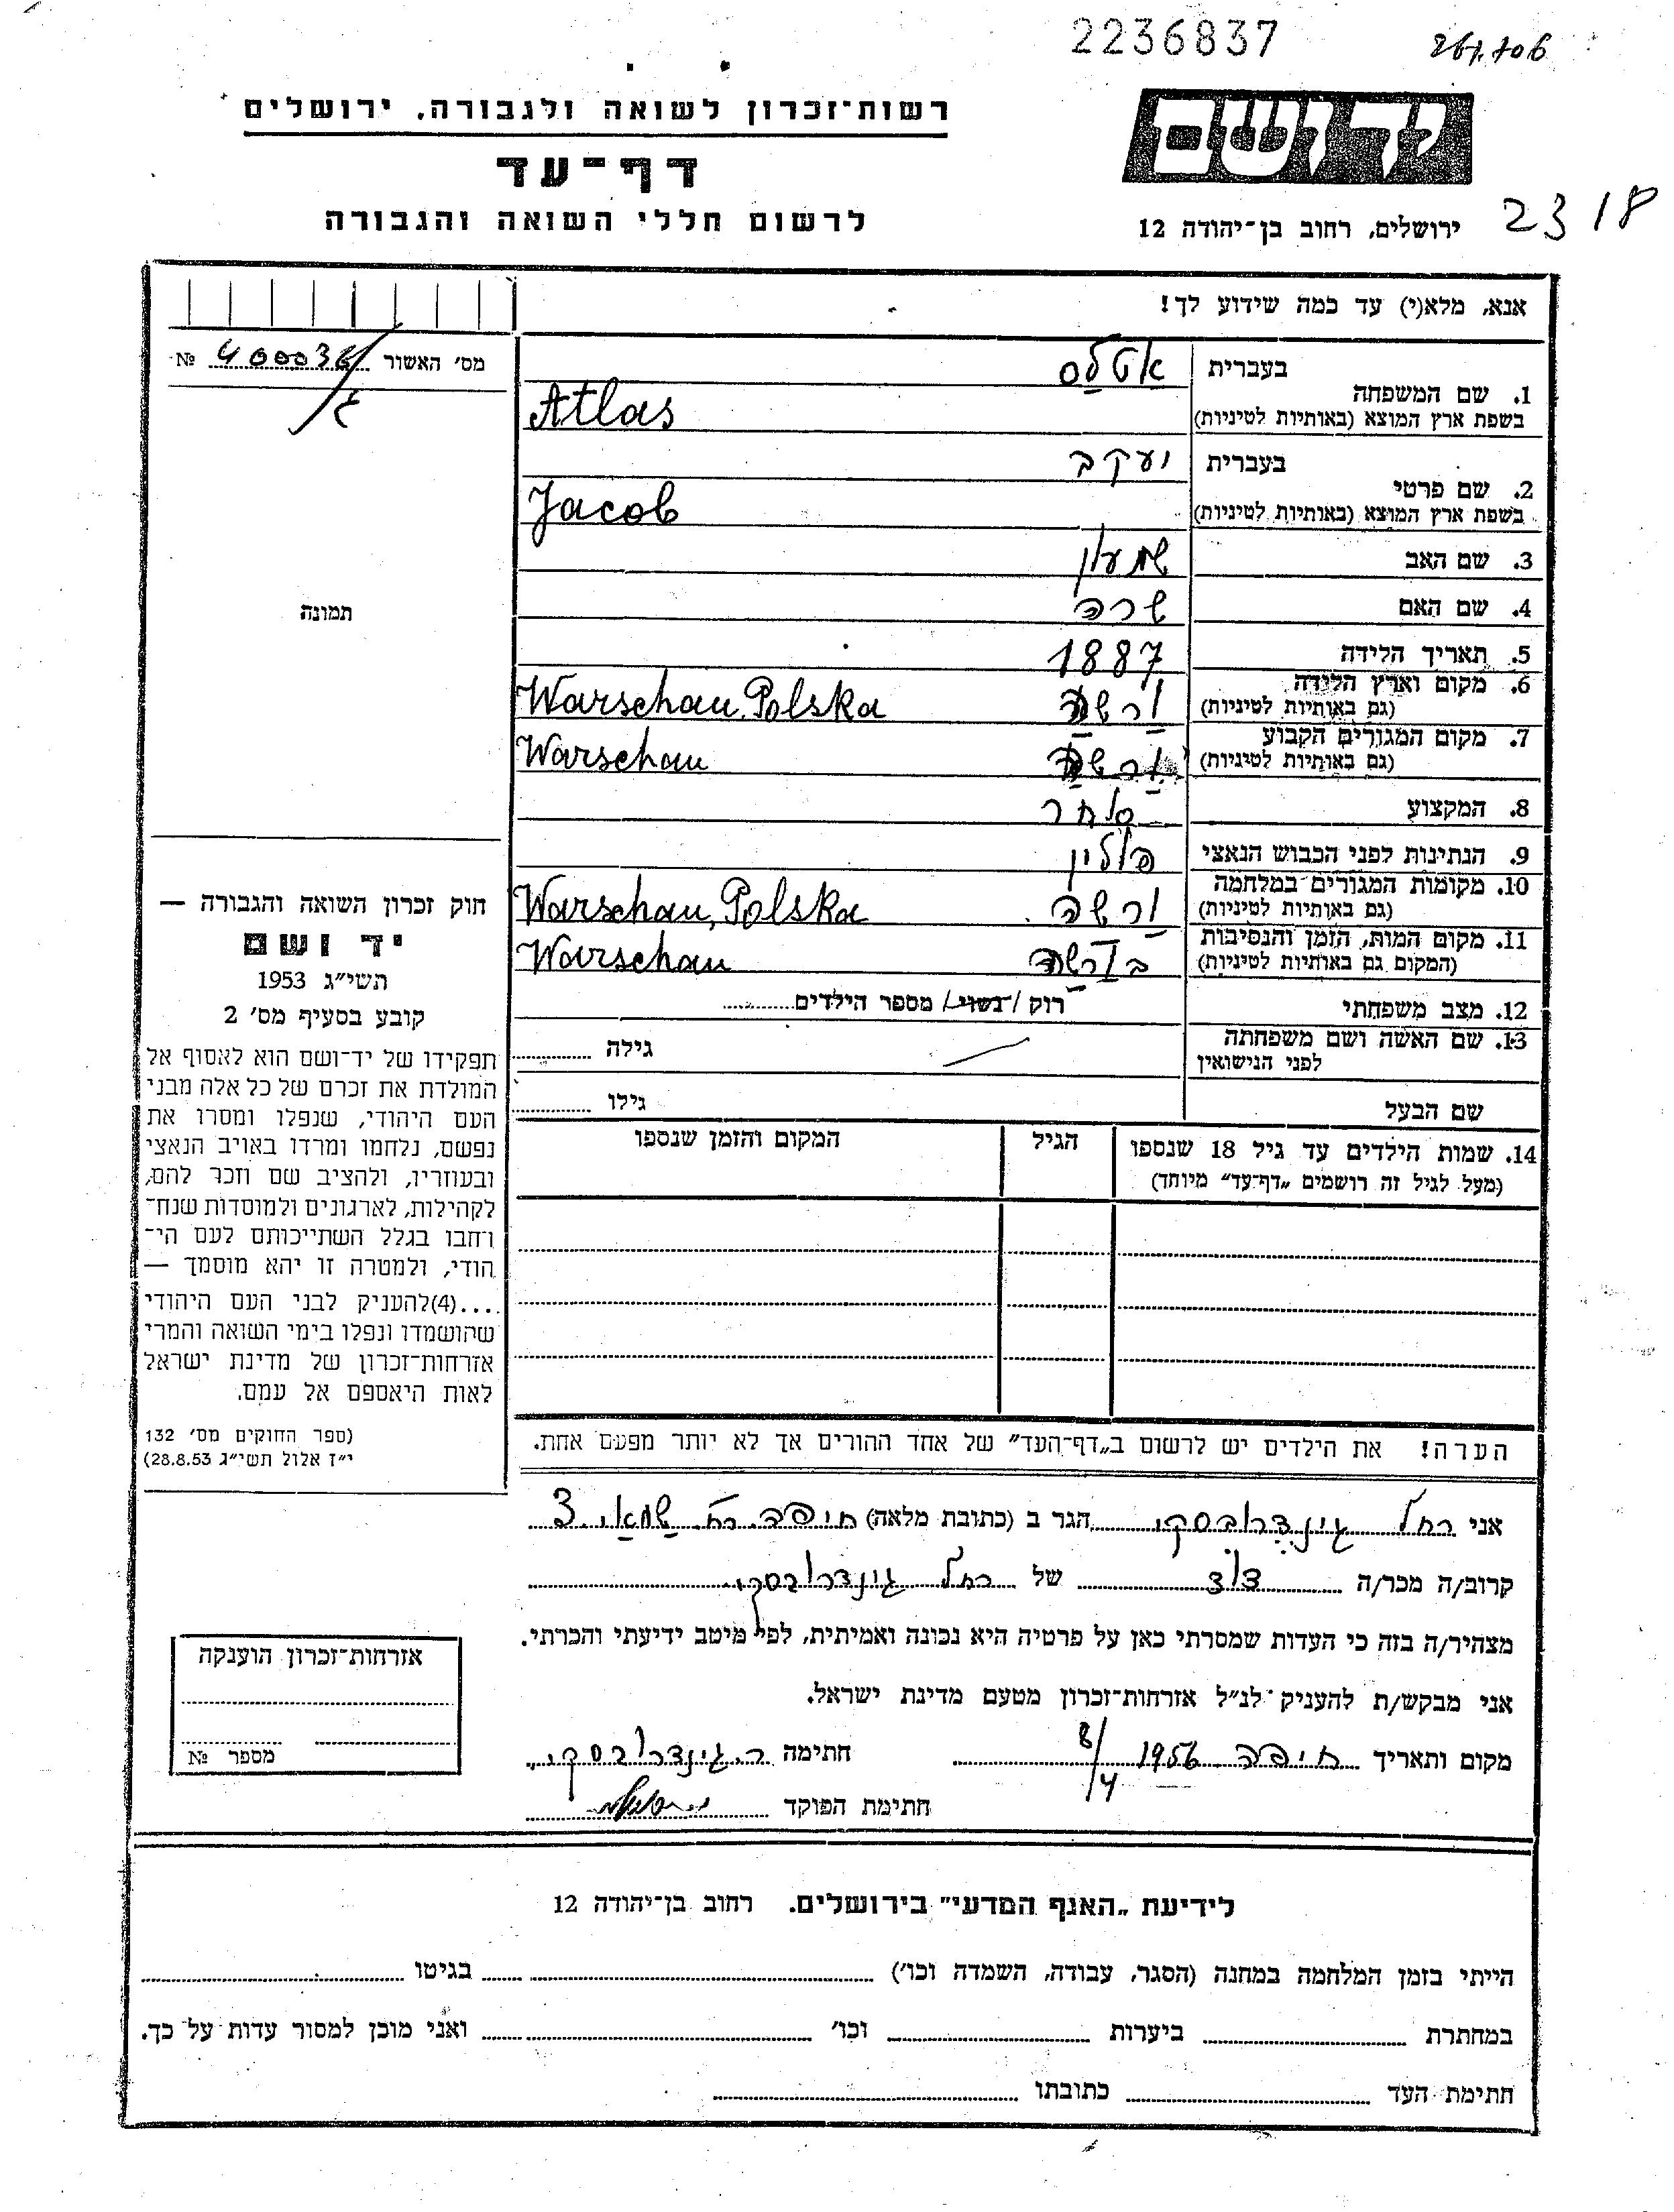 2236837
267.706
רשות־זכרון לשואה ולגבורה, ירושלים
דף־עד
לרשום חללי השואה והגבורה
יד ושם
ירושלים, רחוב בן־יהודה 12
2318
אנא, מלא(י) עד כמה שידוע לך!
מס׳ האשור № 400036
1. שם המשפחה
בעברית אטלס
בשפת ארץ המוצא (באותיות לטיניות) Atlas
2. שם פרטי
בעברית יעקב
בשפת ארץ המוצא (באותיות לטיניות) Jacob
3. שם האב שמעון
4. שם האם שרה
5. תאריך הלידה 1887
6. מקום וארץ הלידה (גם באותיות לטיניות) ורשה Warschau, Polska
7. מקום המגורים הקבוע (גם באותיות לטיניות) ורשה Warschau
8. המקצוע סוחר
9. הנתינות לפני הכבוש הנאצי פולין
10. מקומות המגורים במלחמה (גם באותיות לטיניות) ורשה Warschau, Polska
11. מקום המות, הזמן והנסיבות (המקום גם באותיות לטיניות) בורשה Warschau
12. מצב משפחתי רוק / נשוי / מספר הילדים
13. שם האשה ושם משפחתה לפני הנישואין גילה
שם הבעל גילו
14. שמות הילדים עד גיל 18 שנספו הגיל המקום והזמן שנספו
(מעל לגיל זה רושמים „דף־עד״ מיוחד)
הערה! את הילדים יש לרשום ב„דף־העד״ של אחד ההורים אך לא יותר מפעם אחת.
תמונה
חוק זכרון השואה והגבורה —
יד ושם
תשי״ג 1953
קובע בסעיף מס׳ 2
תפקידו של יד־ושם הוא לאסוף אל
המולדת את זכרם של כל אלה מבני
העם היהודי, שנפלו ומסרו את
נפשם, נלחמו ומרדו באויב הנאצי
ובעוזריו, ולהציב שם וזכר להם,
לקהילות, לארגונים ולמוסדות שנח־
רבו בגלל השתייכותם לעם הי־
הודי, ולמטרה זו יהא מוסמך —
....(4)להעניק לבני העם היהודי
שהושמדו ונפלו בימי השואה והמרי
אזרחות־זכרון של מדינת ישראל
לאות היאספם אל עמם.
(ספר החוקים מס׳ 132
י״ז אלול תשי״ג 28.8.53)
אני רחל גינדרובסקי הגר ב (כתובת מלאה) חיפה רח׳ 3
קרוב/ה מכר/ה דוד של רחל גינדרובסקי
מצהיר/ה בזה כי העדות שמסרתי כאן על פרטיה היא נכונה ואמיתית, לפי מיטב ידיעתי והכרתי.
אני מבקש/ת להעניק לנ״ל אזרחות־זכרון מטעם מדינת ישראל.
מקום ותאריך חיפה 1956 8/4 חתימה ר. גינדרובסקי
חתימת הפוקד
אזרחות־זכרון הוענקה
מספר №
לידיעת „האגף המדעי״ בירושלים. רחוב בן־יהודה 12
הייתי בזמן המלחמה במחנה (הסגר, עבודה, השמדה וכו׳) בגיטו
במחתרת ביערות וכו׳ ואני מוכן למסור עדות על כך.
חתימת העד כתובתו